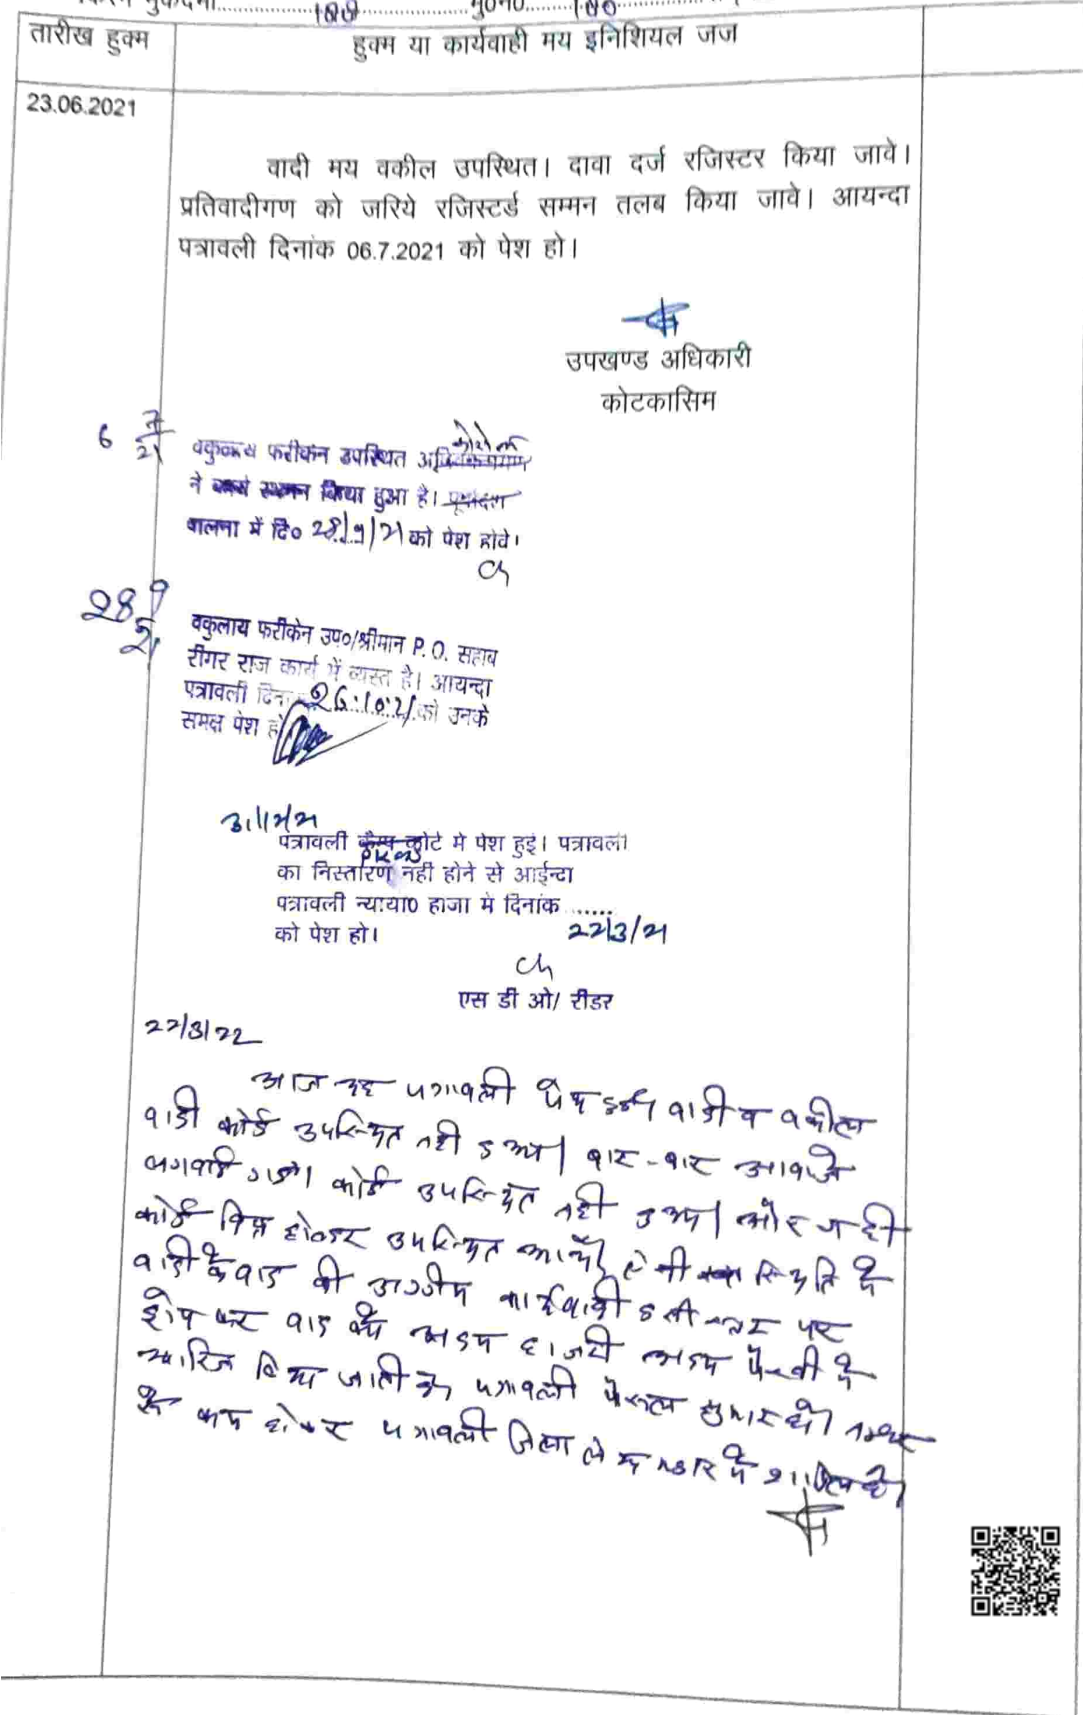 तारीख हुक्म
हुक्म या कार्यवाही मय इनिशियल जज
23.06.2021
वादी मय वकील उपस्थित। दावा दर्ज रजिस्टर किया जावे।
प्रतिवादीगण को जरिये रजिस्टर्ड सम्मन तलब किया जावे। आयन्दा
पत्रावली दिनांक 06.7.2021 को पेश हो।
उपखण्ड अधिकारी
कोटकासिम
6 7/21
फरीकेन उपस्थित
ने किया हुआ है।
पालना में दि० 28/9/21 को पेश होवे।
28 9/21
वकुलाय फरीकेन उप०/श्रीमान P.O. सहाब
दीगर राज कार्य में व्यस्त है। आयन्दा
पत्रावली 26.10.21 को उनके
समक्ष पेश हो
पत्रावली कैम्प कोर्ट मे पेश हुई। पत्रावली
का निस्तारण नही होने से आईन्दा
पत्रावली न्याया0 हाजा मे दिनांक ......
को पेश हो। 22/3/21
एस डी ओ/ रीडर
22/3/22
आज यह पत्रावली पेश हुई। वादी व वकील
वादी कोई उपस्थित नही हुआ। बार-बार आवाजे
लगवाई गई। कोई उपस्थित नही हुआ। और न ही
कोई होल्डर उपस्थित ऐसी स्थिति मे
वादी के वाद की अग्रीम कार्यवाही इसी स्तर पर
ड्रोप कर वाद को अदम हाजरी अदम पैरवी मे
खारिज किया जाता है। पत्रावली फैसल शुमार हो। नम्बर
से कम होकर पत्रावली जिला लेख भण्डार मे